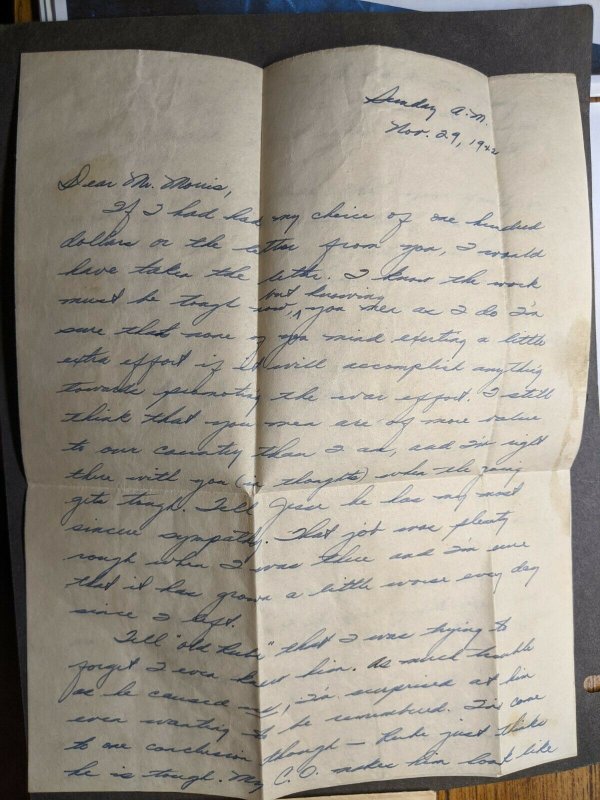 Sunday A.M.
Nov. 29, 1942
Dear Mr. Morris,
If I had had my choice of one hundred
dollars or the letter from you, I would
have taken the letter. I know the work
must be tough now, but knowing you men as I do I'm
sure that none of you mind exerting a little
extra effort if it will accomplish anything
towards promoting the war effort. I still
think that you men are of more value
to our country than I am, and I'm right
there with you (in thoughts) when the going
gets tough. Tell Jesse he has my most
sincere sympathy. That job was plenty
rough when I was there and I'm sure
that it has grown a little worse every day
since I left.
Tell "old Rube" that I was trying to
forget I ever knew him. As much trouble
as he caused me, I'm surprised at him
even wanting to be remembered. I've come
to one conclusion though — Rube just thinks
he is tough. My C.O. makes him look like